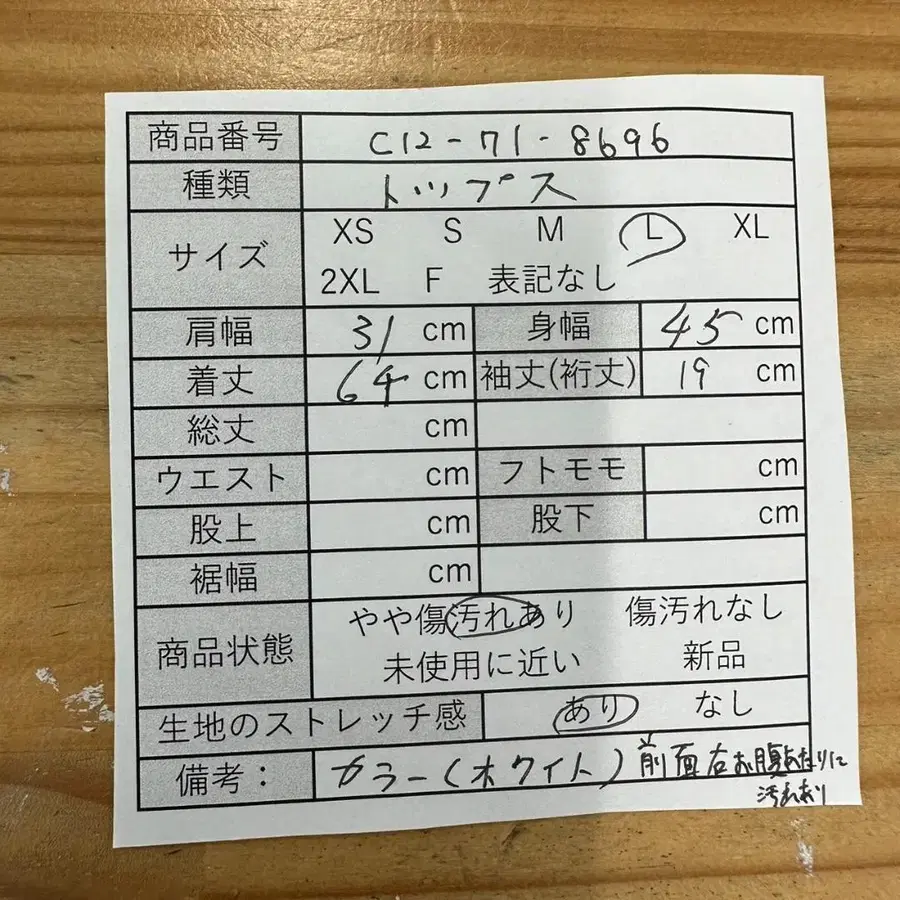 商品番号 C12-71-8696
種類 トップス
サイズ XS S M L XL
2XL F 表記なし
肩幅 31 cm 身幅 45 cm
着丈 64 cm 袖丈(裄丈) 19 cm
総丈 cm
ウエスト cm フトモモ cm
股上 cm 股下 cm
裾幅 cm
商品状態 やや傷汚れあり 傷汚れなし
未使用に近い 新品
生地のストレッチ感 あり なし
備考： カラー(ホワイト) 前面右お腹あたりに
汚れあり